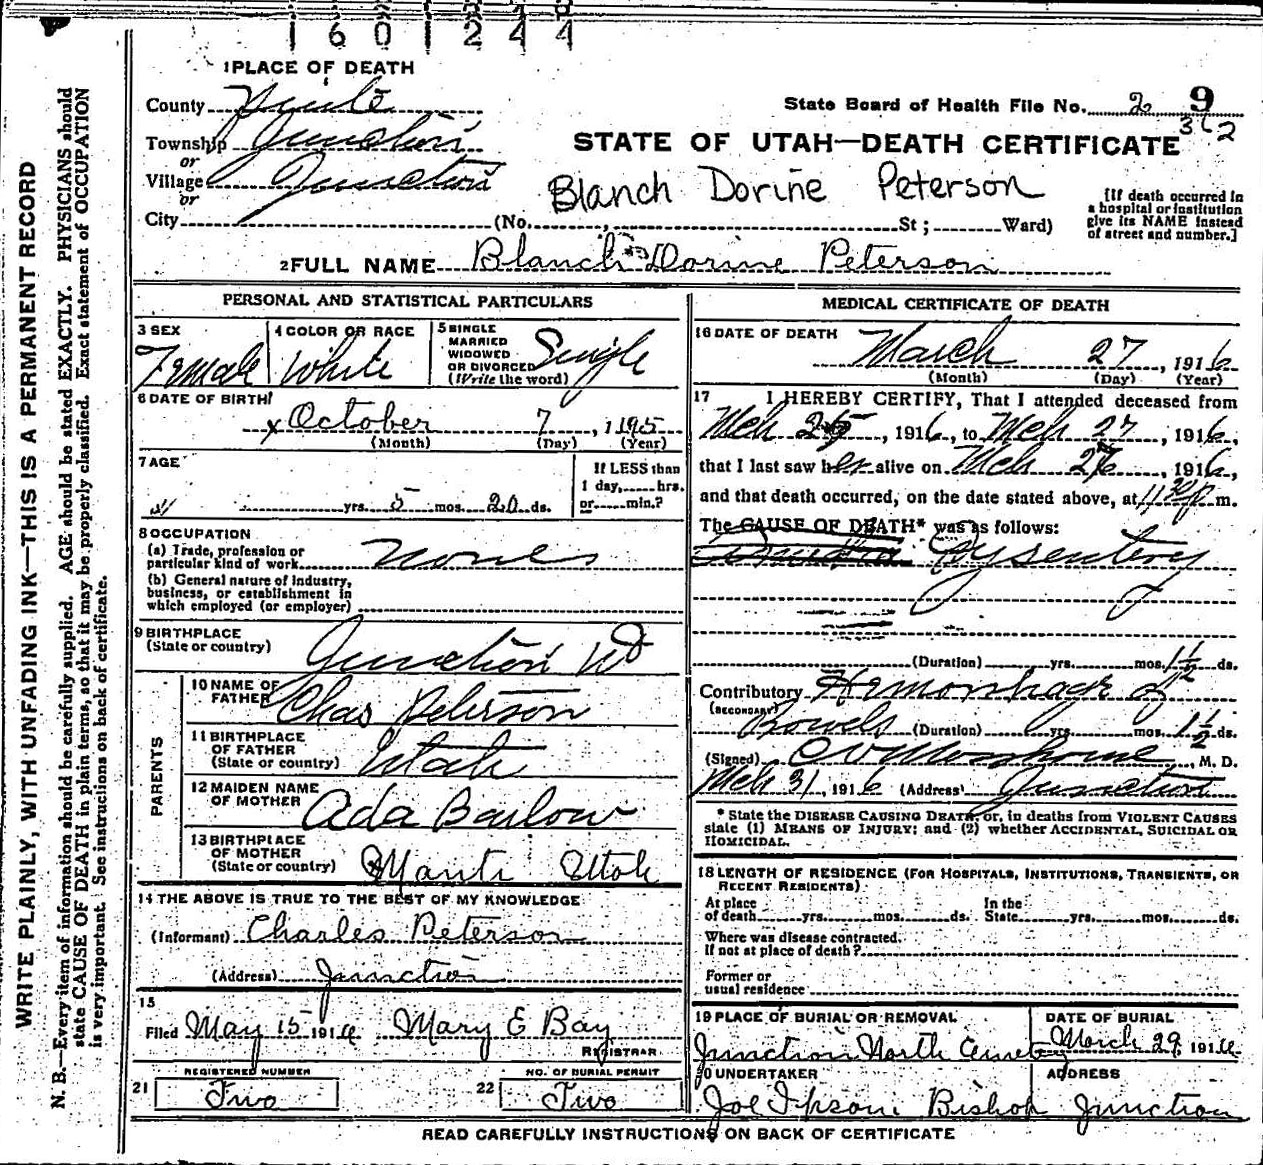 1601244
1 PLACE OF DEATH
County Piute
State Board of Health File No. 2 9
362
Township Junction
or
Village Junction
or
City (No. St; Ward)
STATE OF UTAH—DEATH CERTIFICATE
Blanch Dorine Peterson
[If death occurred in a hospital or institution give its NAME instead of street and number.]
2 FULL NAME Blanch Dorine Peterson
PERSONAL AND STATISTICAL PARTICULARS
3 SEX Female
4 COLOR OR RACE White
5 SINGLE MARRIED WIDOWED OR DIVORCED (Write the word) Single
6 DATE OF BIRTH
x October 7, 1915
(Month) (Day) (Year)
7 AGE
yrs. 5 mos. 20 ds.
If LESS than 1 day, hrs. or min.?
8 OCCUPATION
(a) Trade, profession or particular kind of work None
(b) General nature of industry, business, or establishment in which employed (or employer)
9 BIRTHPLACE (State or country) Junction Ut
PARENTS
10 NAME OF FATHER Chas Peterson
11 BIRTHPLACE OF FATHER (State or country) Utah
12 MAIDEN NAME OF MOTHER Ada Barlow
13 BIRTHPLACE OF MOTHER (State or country) Manti Utah
14 THE ABOVE IS TRUE TO THE BEST OF MY KNOWLEDGE
(Informant) Charles Peterson
(Address) Junction
15
Filed May 15 1916 Mary E Bay
REGISTRAR
21 REGISTERED NUMBER Two
22 NO. OF BURIAL PERMIT Two
MEDICAL CERTIFICATE OF DEATH
16 DATE OF DEATH
March 27, 1916
(Month) (Day) (Year)
17 I HEREBY CERTIFY, That I attended deceased from
Mch 25, 1916, to Mch 27, 1916,
that I last saw her alive on Mch 27, 1916,
and that death occurred, on the date stated above, at 11 30 p m.
The CAUSE OF DEATH* was as follows:
Dysentery
(Duration) yrs. mos. 1 1/2 ds.
Contributory (SECONDARY) Hemorrhage of
Bowels (Duration) yrs. mos. 1 1/2 ds.
(Signed) , M. D.
Mch 31, 1916 (Address) Junction
* State the DISEASE CAUSING DEATH, or, in deaths from VIOLENT CAUSES
state (1) MEANS OF INJURY; and (2) whether ACCIDENTAL, SUICIDAL OR
HOMICIDAL.
18 LENGTH OF RESIDENCE (FOR HOSPITALS, INSTITUTIONS, TRANSIENTS, OR
RECENT RESIDENTS)
At place of death yrs. mos. ds. In the State yrs. mos. ds.
Where was disease contracted,
if not at place of death?
Former or
usual residence
19 PLACE OF BURIAL OR REMOVAL
Junction North
DATE OF BURIAL
March 29, 1916
20 UNDERTAKER
Joe Ipson Bishop
ADDRESS
Junction
READ CAREFULLY INSTRUCTIONS ON BACK OF CERTIFICATE
WRITE PLAINLY, WITH UNFADING INK—THIS IS A PERMANENT RECORD
N. B.—Every item of information should be carefully supplied. AGE should be stated EXACTLY. PHYSICIANS should
state CAUSE OF DEATH in plain terms, so that it may be properly classified. Exact statement of OCCUPATION
is very important. See instructions on back of certificate.